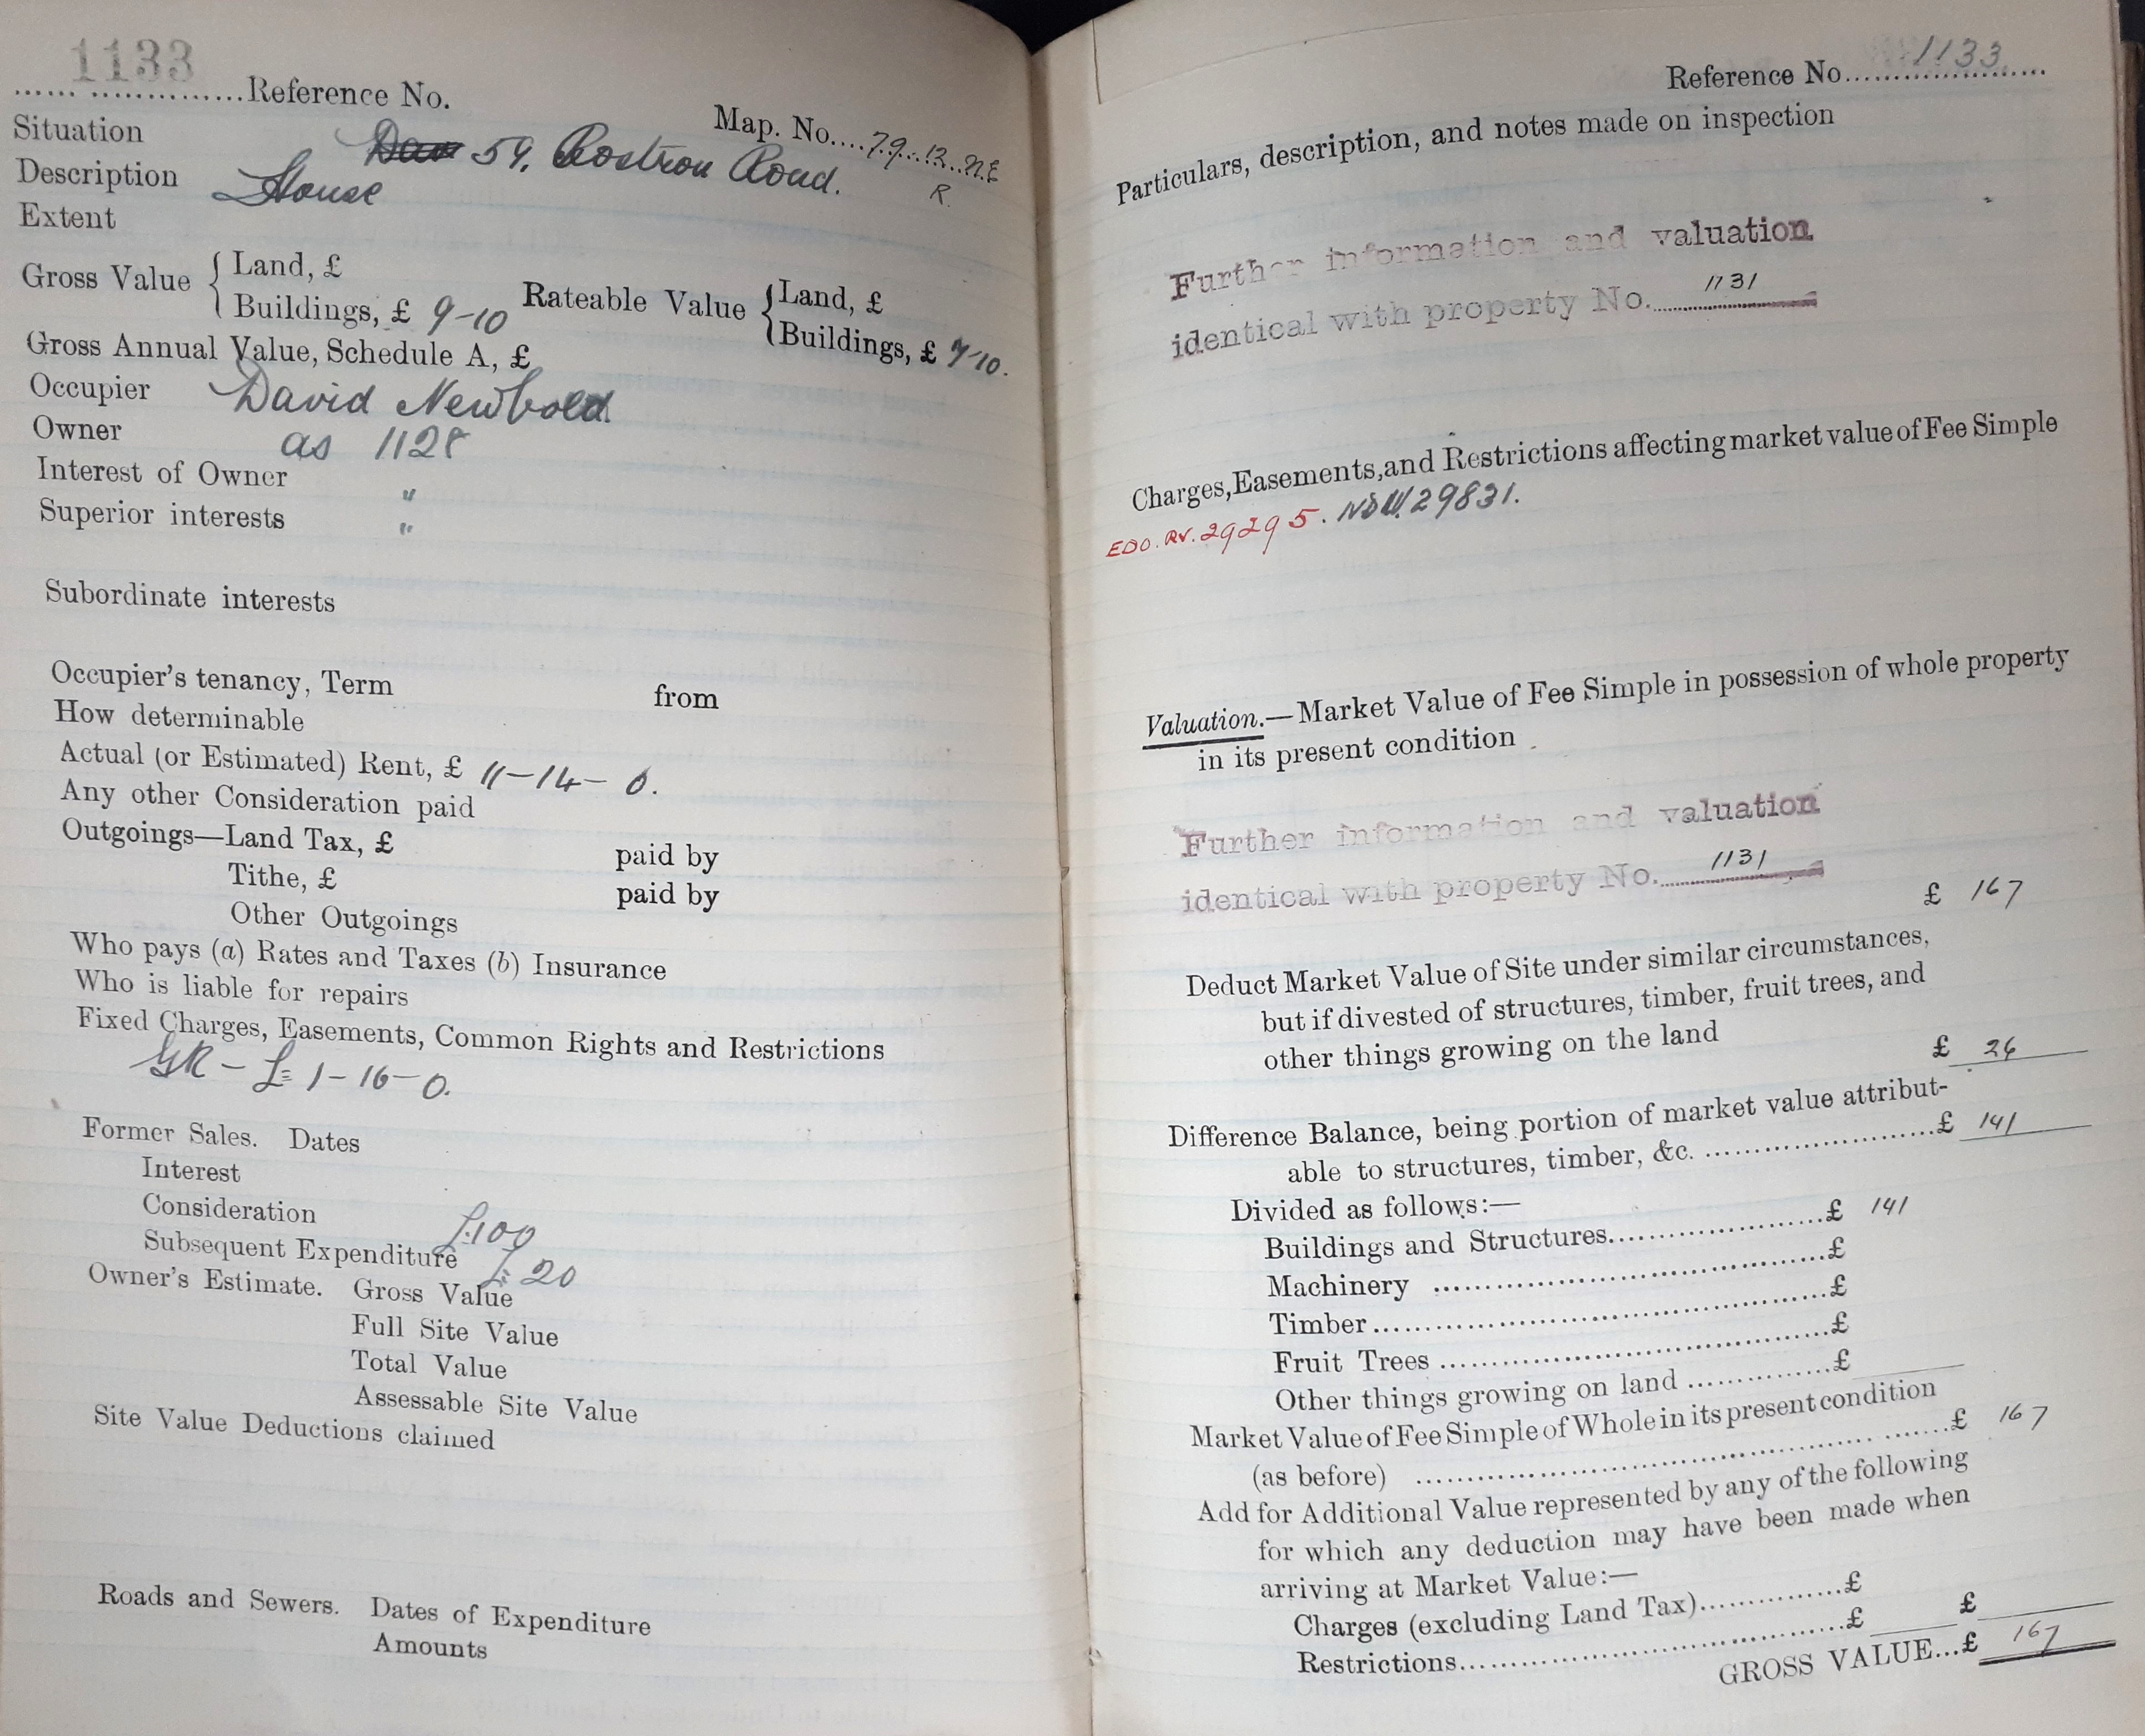 1133
...... ...............Reference No.
Map. No....79..12..N.E
R.
Situation 59, Rostron Road.
Description House
Extent
Gross Value { Land, £
Buildings, £ 9-10
Rateable Value { Land, £
Buildings, £ 7-10.
Gross Annual Value, Schedule A, £
Occupier David Newbold
Owner as 1128
Interest of Owner "
Superior interests "
Subordinate interests
Occupier's tenancy, Term from
How determinable
Actual (or Estimated) Rent, £ 11-14-0.
Any other Consideration paid
Outgoings—Land Tax, £ paid by
Tithe, £ paid by
Other Outgoings
Who pays (a) Rates and Taxes (b) Insurance
Who is liable for repairs
Fixed Charges, Easements, Common Rights and Restrictions
GR - £1-16-0.
Former Sales. Dates
Interest
Consideration £100
Subsequent Expenditure £20
Owner's Estimate. Gross Value
Full Site Value
Total Value
Assessable Site Value
Site Value Deductions claimed
Roads and Sewers. Dates of Expenditure
Amounts
Reference No. 1133
Particulars, description, and notes made on inspection
Further information and valuation
identical with property No. 1131
Charges, Easements, and Restrictions affecting market value of Fee Simple
EDO. RV. 29295. 29831.
Valuation.—Market Value of Fee Simple in possession of whole property
in its present condition
Further information and valuation
identical with property No. 1131
£ 167
Deduct Market Value of Site under similar circumstances,
but if divested of structures, timber, fruit trees, and
other things growing on the land £ 26
Difference Balance, being portion of market value attribut-
able to structures, timber, &c. £ 141
Divided as follows:—
Buildings and Structures £ 141
Machinery £
Timber £
Fruit Trees £
Other things growing on land £
Market Value of Fee Simple of Whole in its present condition
(as before) £ 167
Add for Additional Value represented by any of the following
for which any deduction may have been made when
arriving at Market Value:—
Charges (excluding Land Tax) £
Restrictions £ £
GROSS VALUE...£ 167